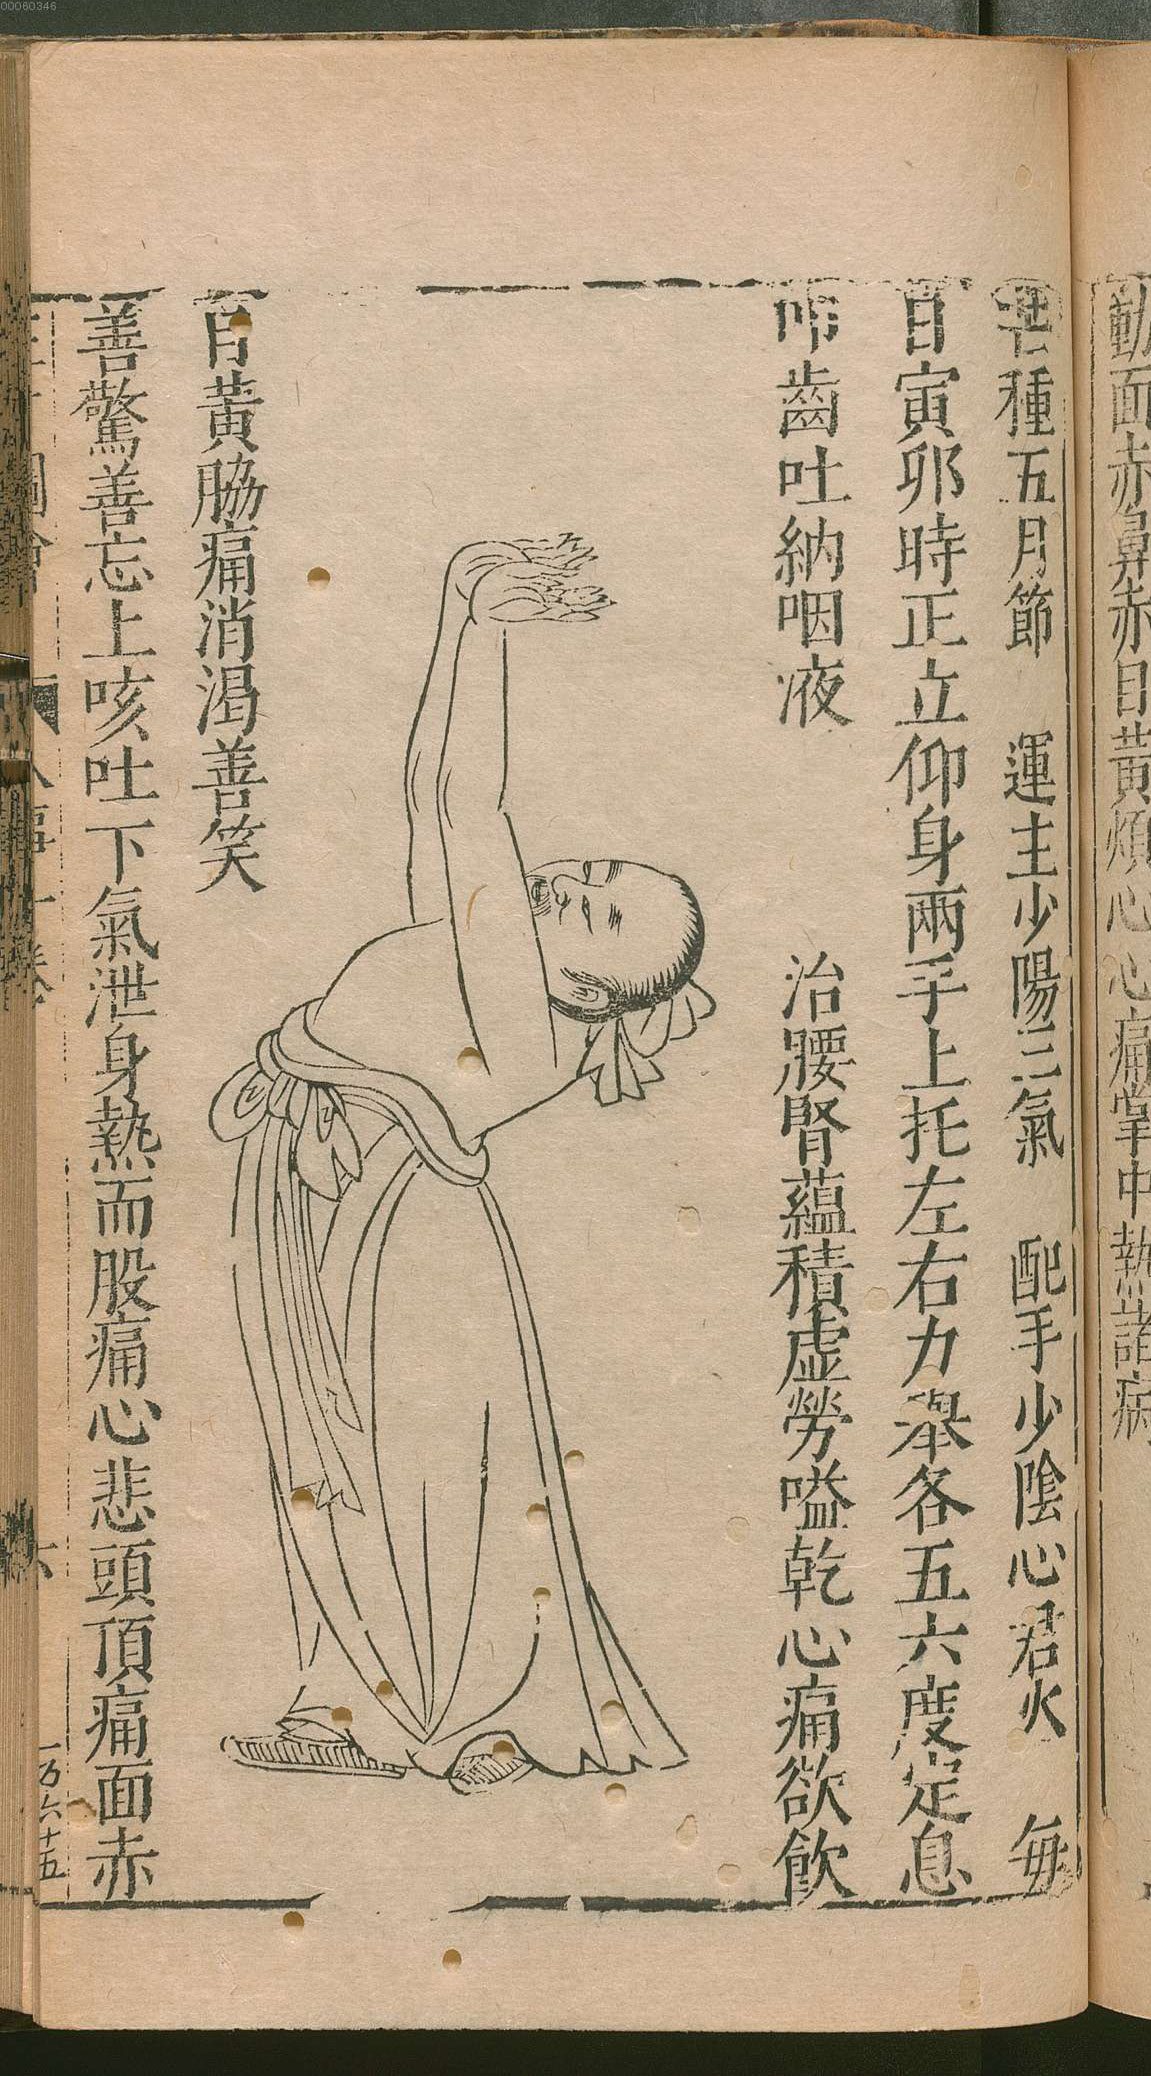 動面赤鼻赤目黄煩心心痛掌中熱諸病
芒種五月節　運主少陽三氣　配手少陰心君火　每
日寅卯時正立仰身兩手上托左右力舉各五六度定息
叩齒吐納咽液　治腰腎蘊積虛勞嗌乾心痛欲飲
目黃脇痛消渴善笑
善驚善忘上咳吐下氣泄身熱而股痛心悲頭頂痛面赤
圖會　人事十卷　六　一万六十五
00060346